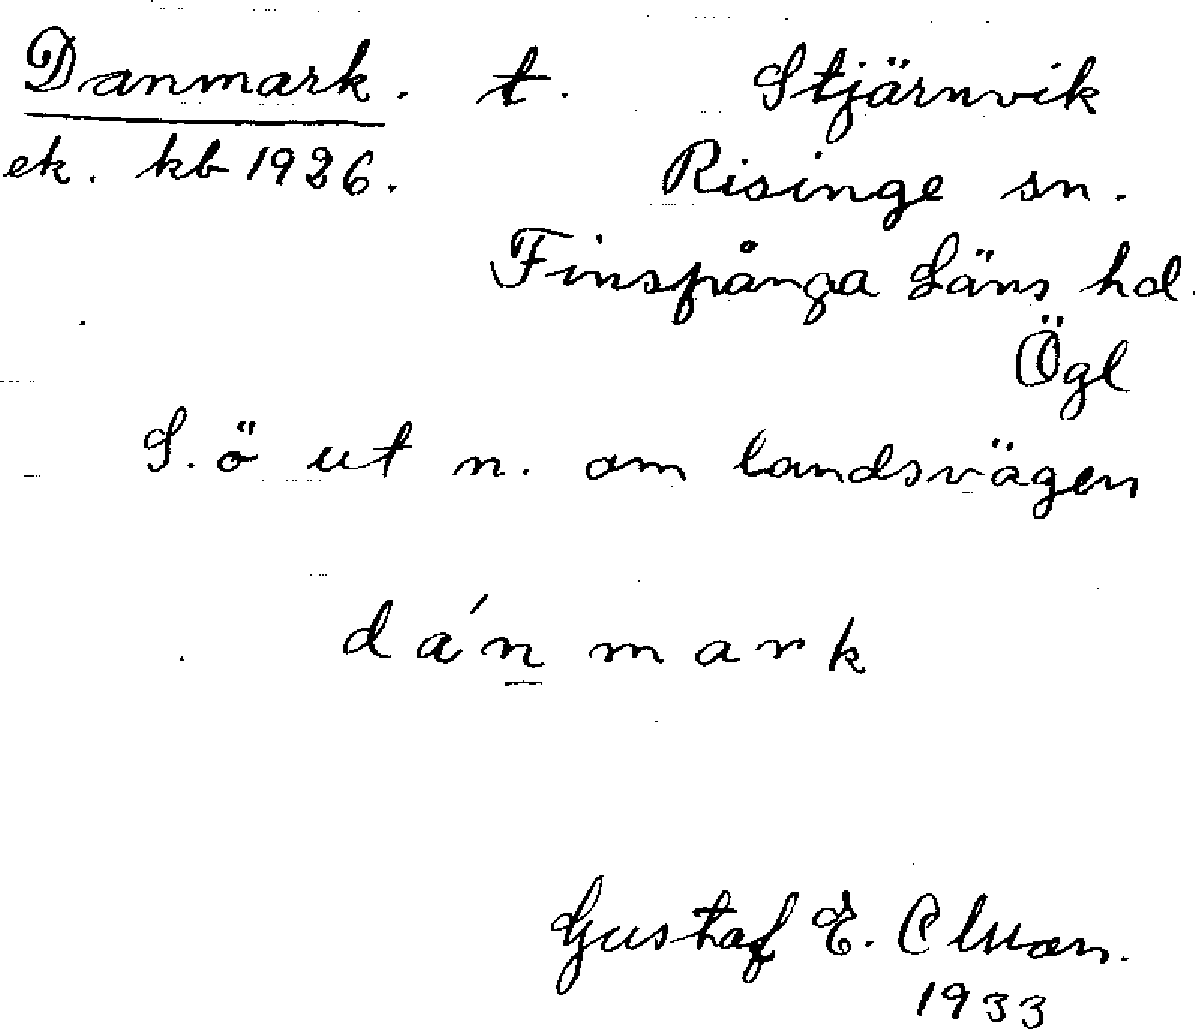 Danmark. t. Stjärnvik
ek. kb 1926. Risinge sn.
Finspånga Läns hd.
Ögl
S. ö ut n. om landsvägen
dán mark
Gustaf E.
1933